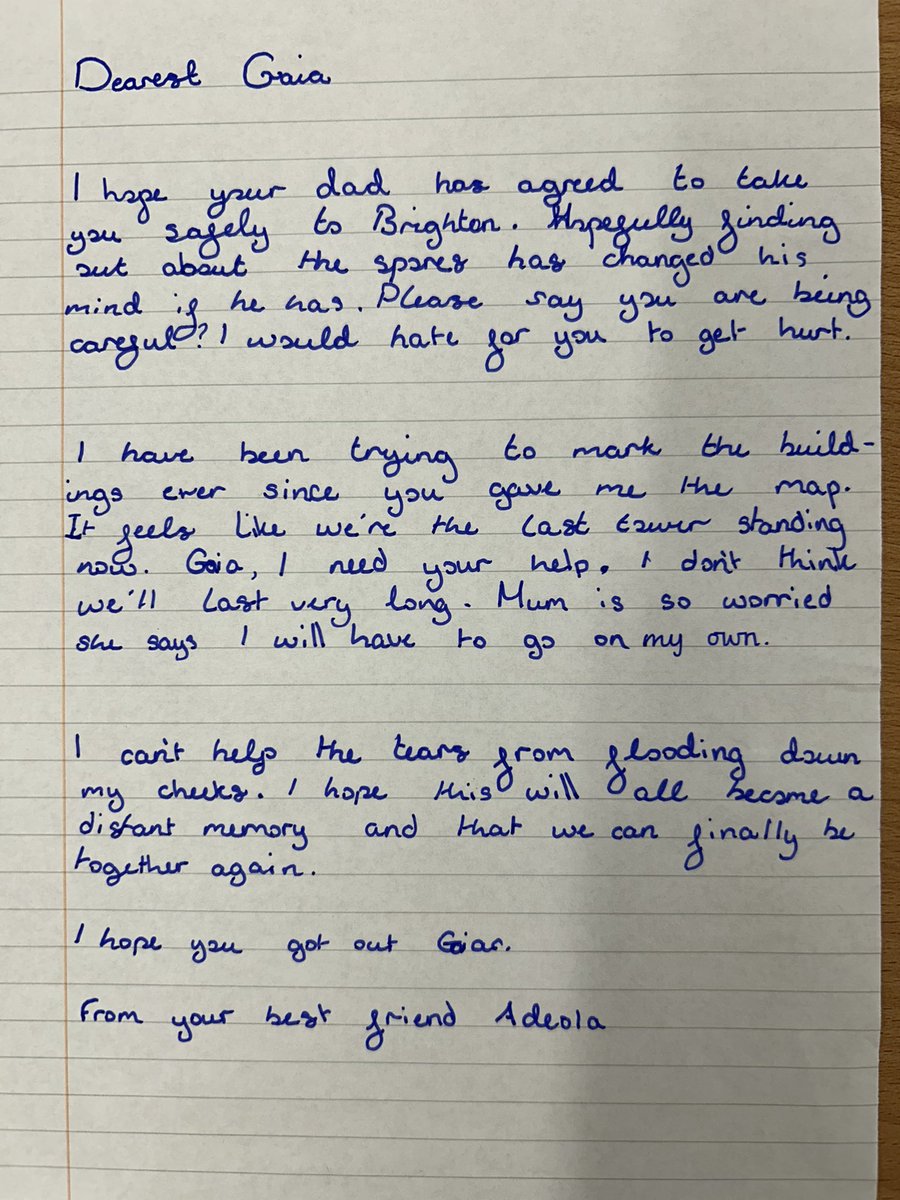 Dearest Gaia
I hope your dad has agreed to take
you safely to Brighton. Hopefully finding
out about the spores has changed his
mind if he has. Please say you are being
careful? I would hate for you to get hurt.
I have been trying to mark the build-
ings ever since you gave me the map.
It feels like we're the last tower standing
now. Gaia, I need your help. I don't think
we'll last very long. Mum is so worried
she says I will have to go on my own.
I can't help the tears from flooding down
my cheeks. I hope this will all become a
distant memory and that we can finally be
together again.
I hope you got out Gaia.
From your best friend Adeola